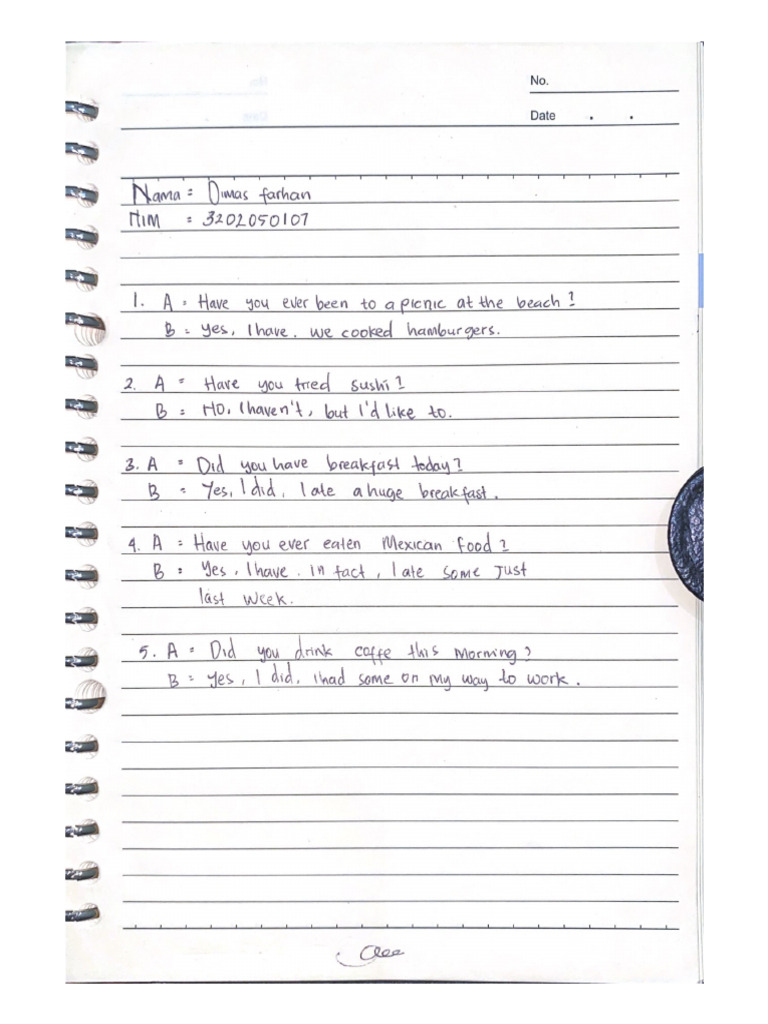 No.
Date . .
Nama = Dimas farhan
NIM = 3202050107
1. A = Have you ever been to a picnic at the beach?
B = Yes, I have. we cooked hamburgers.
2. A = Have you tried sushi?
B = NO, I haven't, but I'd like to.
3. A = Did you have breakfast today?
B = Yes, I did, I ate a huge breakfast.
4. A = Have you ever eaten Mexican food?
B = Yes, I have. in fact, I ate some Just
last week.
5. A = Did you drink coffe this Morning?
B = Yes, I did. I had some on my way to work.